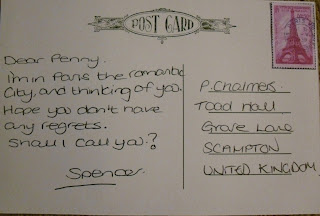 POST CARD
Dear Penny.
I'm in Paris the romantic
City, and thinking of you.
Hope you don't have
any regrets.
Shall I call you?
Spencer
P. Chalmers.
Toad Hall
Grove Lane
SCAMPTON
UNITED KINGDOM